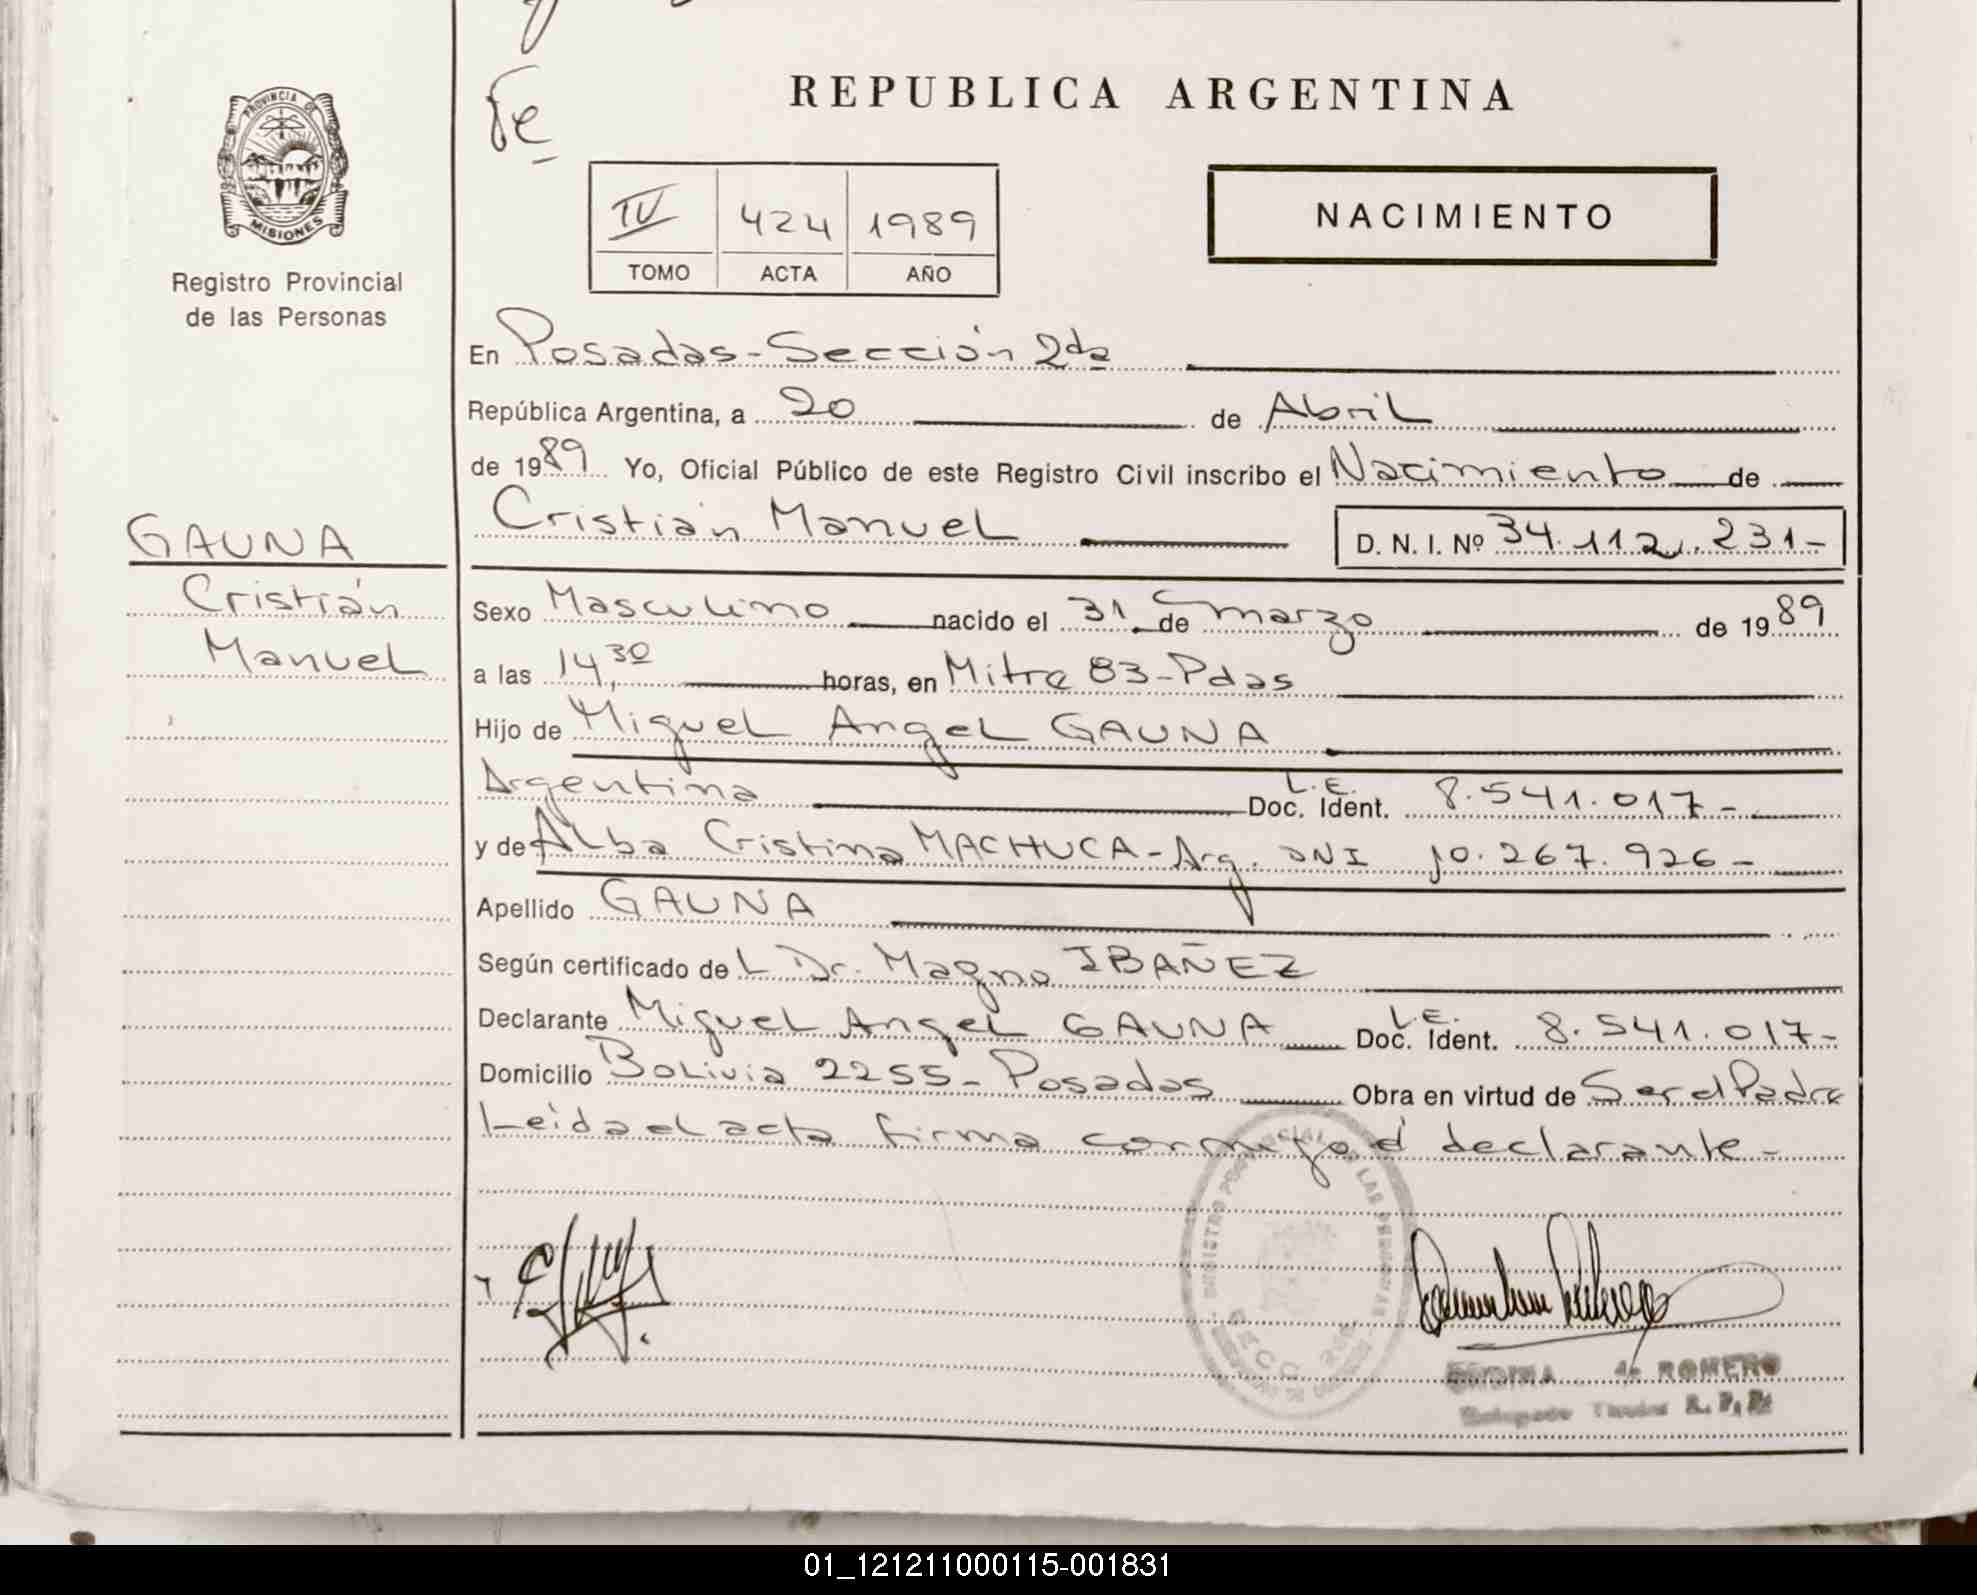 REPUBLICA ARGENTINA
PROVINCIA DE
MISIONES
Registro Provincial
de las Personas
IV 424 1989
TOMO ACTA AÑO
NACIMIENTO
En Posadas-Sección 2da
República Argentina, a 20 de Abril
de 1989 Yo, Oficial Público de este Registro Civil inscribo el Nacimiento de
Cristián Manuel D. N. I. Nº 34.112.231-
GAUNA
Cristián
Manuel
Sexo Masculino nacido el 31 de marzo de 1989
a las 14,30 horas, en Mitre 83-Pdas
Hijo de Miguel Angel GAUNA
Argentina L.E. Doc. Ident. 8.541.017-
y de Alba Cristina MACHUCA-Arg. DNI 10.267.926-
Apellido GAUNA
Según certificado del Dr. Magno IBAÑEZ
Declarante Miguel Angel GAUNA L.E. Doc. Ident. 8.541.017-
Domicilio Bolivia 2255-Posadas Obra en virtud de Ser el Padre
Leída el acta firma conmigo el declarante-
REGISTRO PROVINCIAL DE LAS PERSONAS
SECC. 2da
de ROMERO
Delegada Titular R. P. P.
01_121211000115-001831